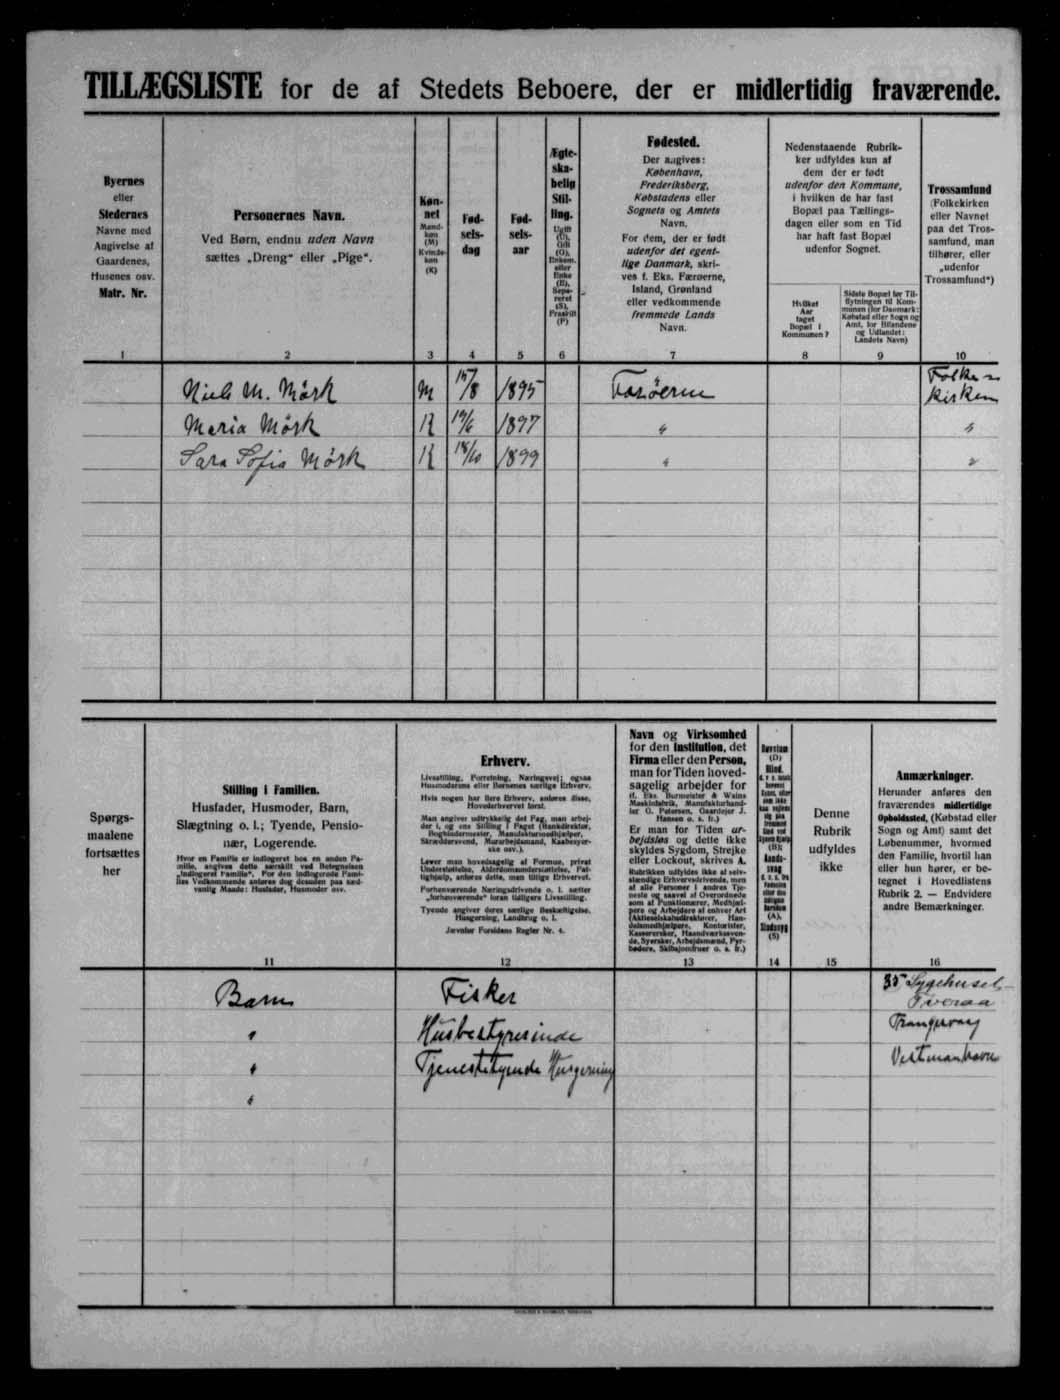 TILLÆGSLISTE for de af Stedets Beboere, der er midlertidig fraværende.
Byernes
eller
Stedernes
Navne med
Angivelse af
Gaardenes,
Husenes osv.
Matr. Nr.
1
Personernes Navn.
Ved Børn, endnu uden Navn
sættes „Dreng“ eller „Pige“.
2
Køn-
net
Mand-
køn
(M)
Kvinde-
køn
(K)
3
Fød-
sels-
dag
4
Fød-
sels-
aar
5
Ægte-
ska-
belig
Stil-
ling.
Ugift
(U),
Gift
(G),
Enkem.
eller
Enke
(E),
Sepa-
reret
(S),
Fraskilt
(F)
6
Fødested.
Der angives:
København,
Frederiksberg,
Købstadens eller
Sognets og Amtets
Navn.
For dem, der er født
udenfor det egent-
lige Danmark, skri-
ves f. Eks. Færøerne,
Island, Grønland
eller vedkommende
fremmede Lands
Navn.
7
Nedenstaaende Rubrik-
ker udfyldes kun af
dem der er født
udenfor den Kommune,
i hvilken de har fast
Bopæl paa Tællings-
dagen eller som en Tid
har haft fast Bopæl
udenfor Sognet.
Hvilket
Aar
taget
Bopæl i
Kommunen?
8
Sidste Bopæl før Til-
flytningen til Kom-
munen (for Danmark:
Købstad eller Sogn og
Amt, for Bilandene
og Udlandet:
Landets Navn)
9
Trossamfund
(Folkekirken
eller Navnet
paa det Tros-
samfund, man
tilhører, eller
„udenfor
Trossamfund“)
10
Niels M. Mörk M 15/8 1895 Færöerne Folke-
kirken
Maria Mörk K 19/6 1897 " "
Sara Sofia Mörk K 18/10 1899 " "
Spørgs-
maalene
fortsættes
her
Stilling i Familien.
Husfader, Husmoder, Barn,
Slægtning o. l.; Tyende, Pensio-
nær, Logerende.
Hvor en Familie er indlogeret hos en anden Fa-
milie, angives dette særskilt ved Betegnelsen
„indlogeret Familie“. For den indlogerede Fami-
lies Vedkommende anføres dog desuden paa sæd-
vanlig Maade: Husfader, Husmoder osv.
11
Erhverv.
Livsstilling, Forretning, Næringsvej; ogsaa
Husmoderens eller Børnenes særlige Erhverv.
Hvis nogen har flere Erhverv, anføres disse,
Hovederhvervet først.
Man angiver udtrykkelig det Fag, man arbej-
der i, og ens Stilling i Faget (Bankdirektør,
Bogbindermester, Manufakturhandler,
Skræddersvend, Murarbejdsmand, Kaabesyer-
ske osv.).
Lever man hovedsagelig af Formue, privat
Understøttelse, Alderdomsunderstøttelse, Fat-
tighjælp, anføres dette, men tillige Erhvervet.
Forhenværende Næringsdrivende o. l. sætter
„forhenværende“ foran tidligere Livsstilling.
Tyende angiver deres særlige Beskæftigelse,
Husgerning, Landbrug o. l.
Jævnfør Forsidens Regler Nr. 4.
12
Navn og Virksomhed
for den Institution, det
Firma eller den Person,
man for Tiden hoved-
sagelig arbejder for
(f. Eks. Burmeister & Wains
Maskinfabrik, Manufakturhand-
ler G. Petersen, Gaardejer J.
Hansen o. s. fr.)
Er man for Tiden ar-
bejdsløs og dette ikke
skyldes Sygdom, Strejke
eller Lockout, skrives A.
Rubrikken udfyldes ikke af selv-
stændige Erhvervsdrivende, men
af alle Personer i andres Tje-
neste og saavel af Overordnede
som af Funktionærer, Medhjæl-
pere og Arbejdere af enhver Art
(Aktieselskabsdirektører, Han-
delsmedhjælpere, Kontorister,
Kasserersker, Haandværkssven-
de, Syersker, Arbejdsmænd, Fyr-
bødere, Skibsjomfruer o. s. fr.)
13
Døvstum
(D)
Blind,
(B);
Aands-
svag
(A),
Sindssyg
(S)
14
Denne
Rubrik
udfyldes
ikke
15
Anmærkninger.
Herunder anføres den
fraværendes midlertidige
Opholdssted, (Købstad eller
Sogn og Amt) samt det
Løbenummer, hvormed
den Familie, hvortil han
eller hun hører, er be-
tegnet i Hovedlistens
Rubrik 2. — Endvidere
andre Bemærkninger.
16
Barn Fisker 35 Sygehuset
Tveraa
" Husbestyrerinde Trangisvaag
" Tjenestetyende Husgerning Vestmanhavn
"